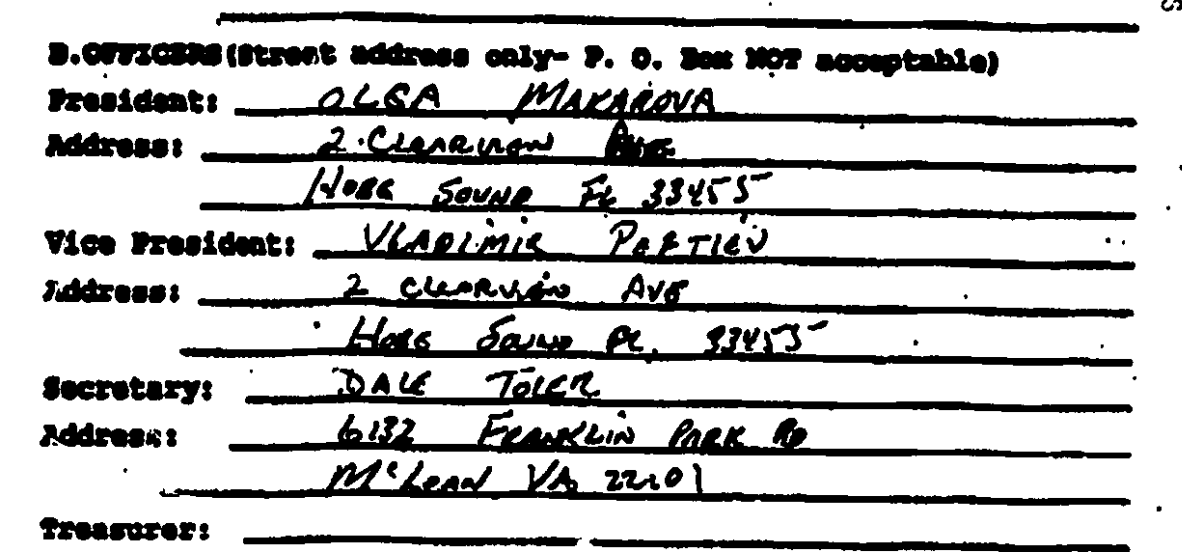 B.OFFICERS(Street address only- P. O. Box NOT acceptable)
President: OLGA MAKAROVA
Address: 2 CLEARVIEW AVE
HOBE SOUND FL 33455
Vice President: VLADIMIR
Address: 2 CLEARVIEW AVE
HOBE SOUND FL. 33455
Secretary: DALE TOLER
Address: 6132 FRANKLIN PARK RD
McLEAN VA 22101
Treasurer: